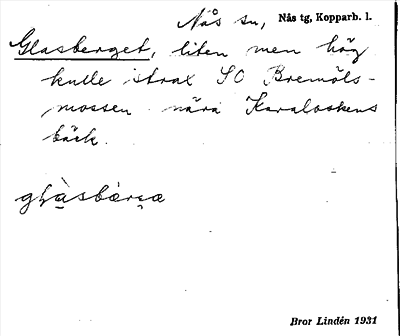 Nås sn, Nås tg, Kopparb. l.
Glasberget, liten men hög
kulle strax SO Bremöls-
mossen nära Karaloskens
bäck.
Bror Lindén 1931